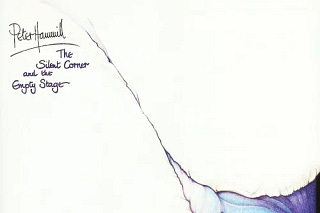 Peter Hammill
The
Silent Corner
and the
Empty Stage